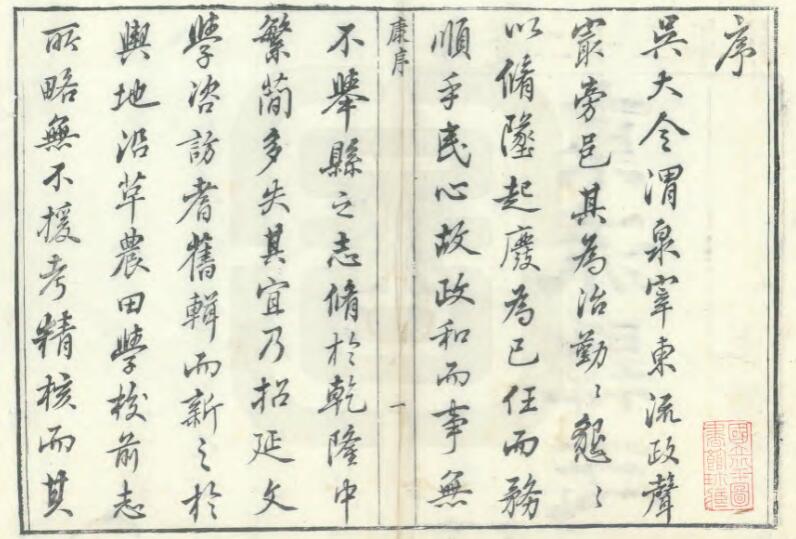 序
吳大令渭泉宰東流政聲
冣旁邑其為治勤〻懇〻
以脩墜起廢為已任而務
順乎民心故政和而事無
康序
一
不舉縣之志脩於乾隆中
繁簡多失其宜乃招延文
學咨訪耆舊輯而新之於
輿地沿革農田學校前志
所略無不援考精核而其